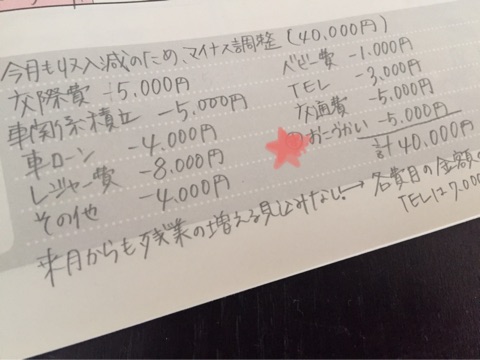 今月も収入減のため、マイナス調整(40,000円)
交際費 -5,000円
車関係積立 -5,000円
車ローン -4,000円
レジャー費 -8,000円
その他 -4,000円
ベビー費 -1,000円
TEL -3,000円
交通費 -5,000円
のおこづかい -5,000円
計40,000円
来月からも残業の増える見込みない。→各費目の金額
TELは7,000